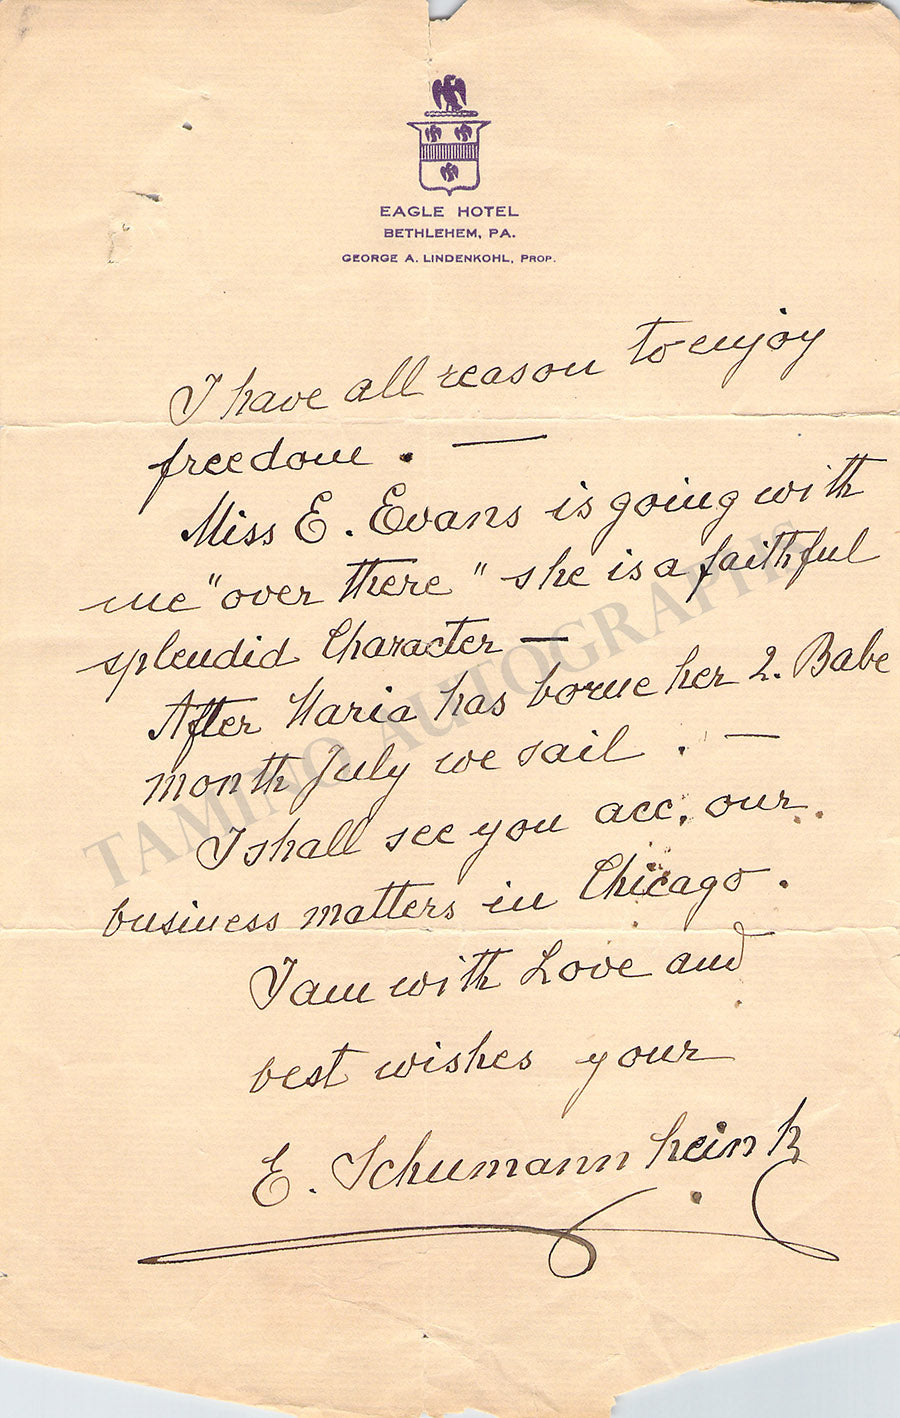 EAGLE HOTEL
BETHLEHEM, PA.
GEORGE A. LINDENKOHL, PROP.
I have all reason to enjoy
freedom. —
Miss E. Evans is going with
me "over there" she is a faithful
splendid Character —
After Maria has borne her 2. Babe
month July we sail. —
I shall see you acc. our
business matters in Chicago.
I am with Love and
best wishes your
E. Schumann heink
TAMINO AUTOGRAPHS